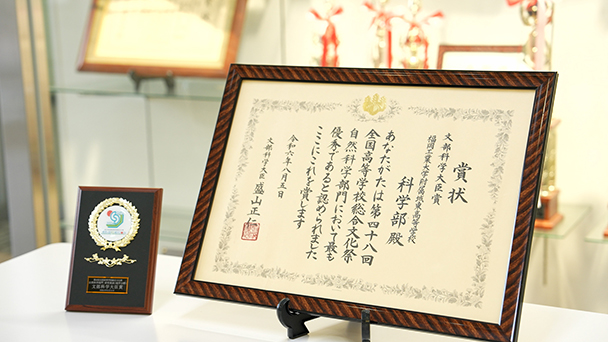 賞状
文部科学大臣賞
福岡工業大学附属城東高等学校
科学部 殿
あなたがたは第四十八回
全国高等学校総合文化祭
自然科学部門において最も
優秀であると認められました
ここにこれを賞します
令和六年八月五日
文部科学大臣 盛山正仁
文部科学大臣賞